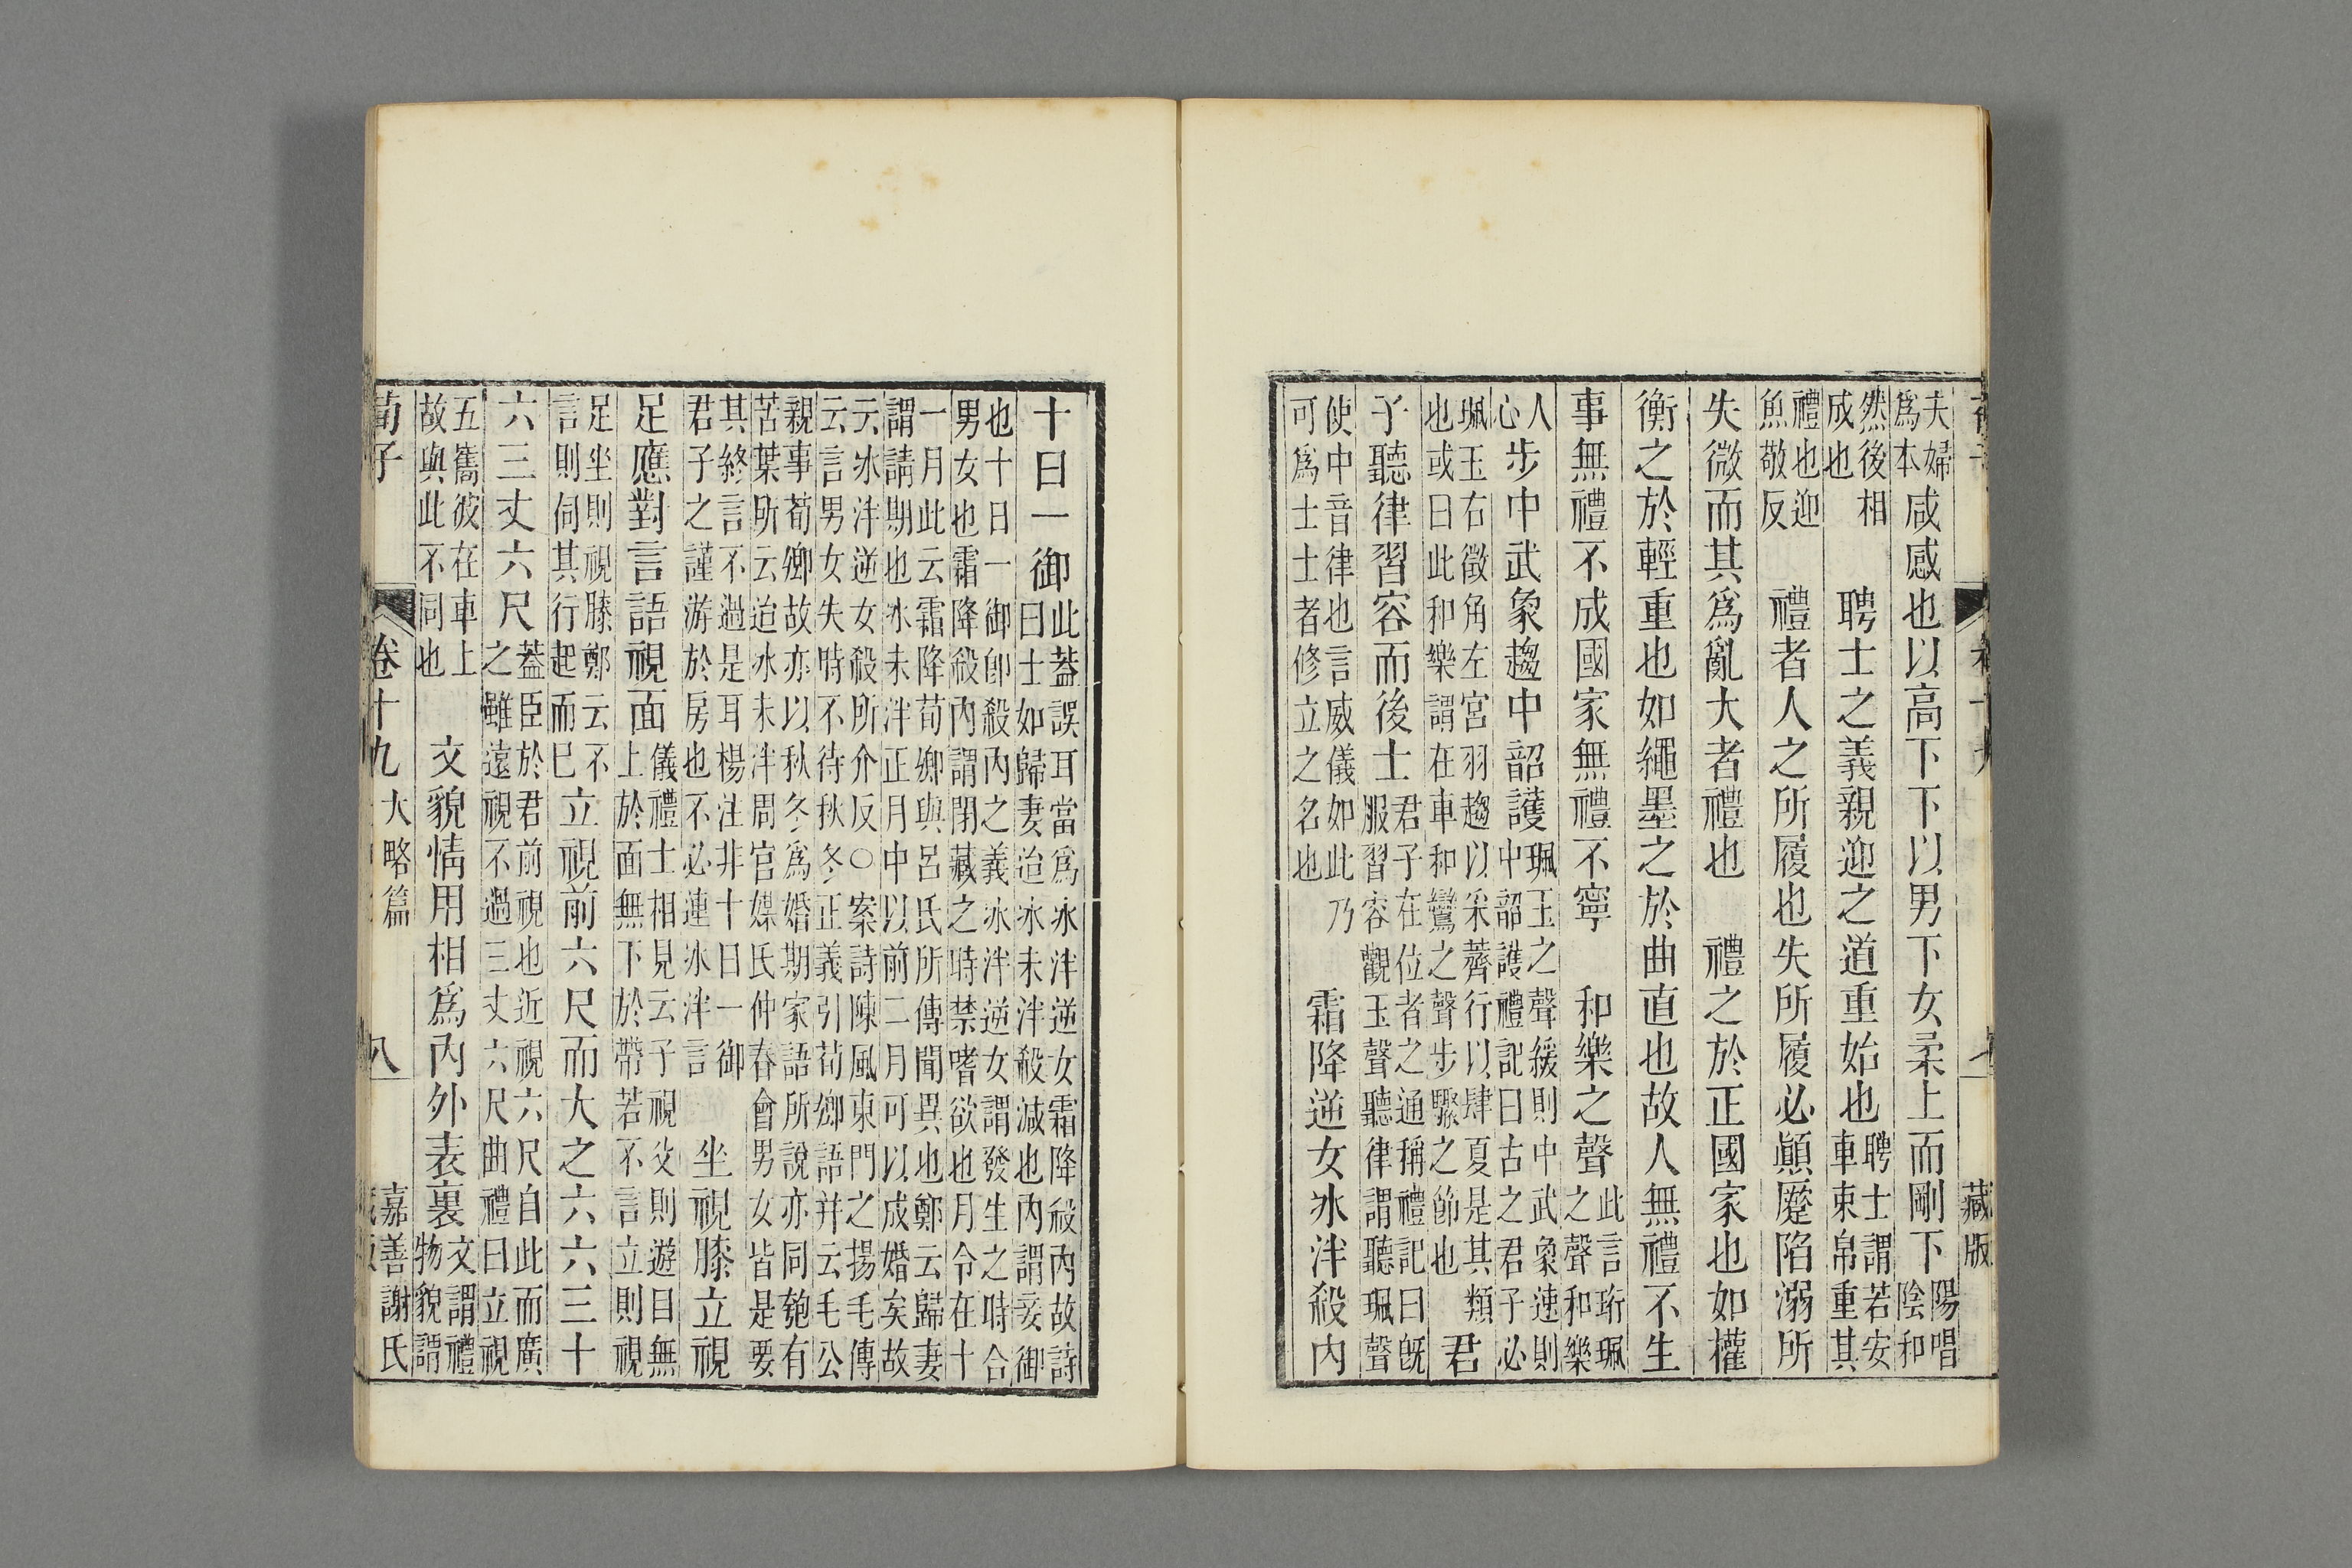 藏版
夫婦爲本咸感也以高下下以男下女柔上而剛下陽唱陰和
然後相成也 聘士之義親迎之道重始也聘士謂若安車束帛重其
禮也迎魚敬反 禮者人之所履也失所履必顚蹷陷溺所
失微而其爲亂大者禮也 禮之於正國家也如權
衡之於輕重也如繩墨之於曲直也故人無禮不生
事無禮不成國家無禮不寧 和樂之聲此言珩珮之聲和樂
人心步中武象趨中韶護珮玉之聲緩則中武象速則中韶護禮記曰古之君子必
珮玉右徵角左宮羽趨以采薺行以肆夏是其類也或曰此和樂謂在車和鸞之聲步驟之節也 君
子聽律習容而後士君子在位者之通稱禮記曰旣服習容觀玉聲聽律謂聽珮聲
使中音律也言威儀如此乃可爲士士者修立之名也 霜降逆女冰泮殺內
十日一御此蓋誤耳當爲冰泮逆女霜降殺內故詩曰士如歸妻迨冰未泮殺減也內謂妾御
也十日一御卽殺內之義冰泮逆女謂發生之時合男女也霜降殺內謂閉藏之時禁嗜欲也月令在十
一月此云霜降荀卿與呂氏所傳聞異也鄭云歸妻謂請期也冰未泮正月中以前二月可以成婚矣故
云冰泮逆女殺所介反○案詩陳風東門之揚毛傳云言男女失時不待秋冬正義引荀卿語幷云毛公
親事荀卿故亦以秋冬爲婚期家語所說亦同匏有苦葉所云迨冰未泮周官媒氏仲春會男女皆是要
其終言不過是耳楊注非十日一御君子之謹游於房也不必連冰泮言 坐視膝立視
足應對言語視面儀禮士相見云子視父則遊目無上於面無下於帶若不言立則視
足坐則視膝鄭云不言則伺其行起而已立視前六尺而大之六六三十
六三丈六尺蓋臣於君前視也近視六尺自此而廣之雖遠視不過三丈六尺曲禮曰立視
五巂彼在車上故與此不同也 文貌情用相爲內外表裏文謂禮物貌謂
荀子 卷十九 大略篇 八 嘉善謝氏